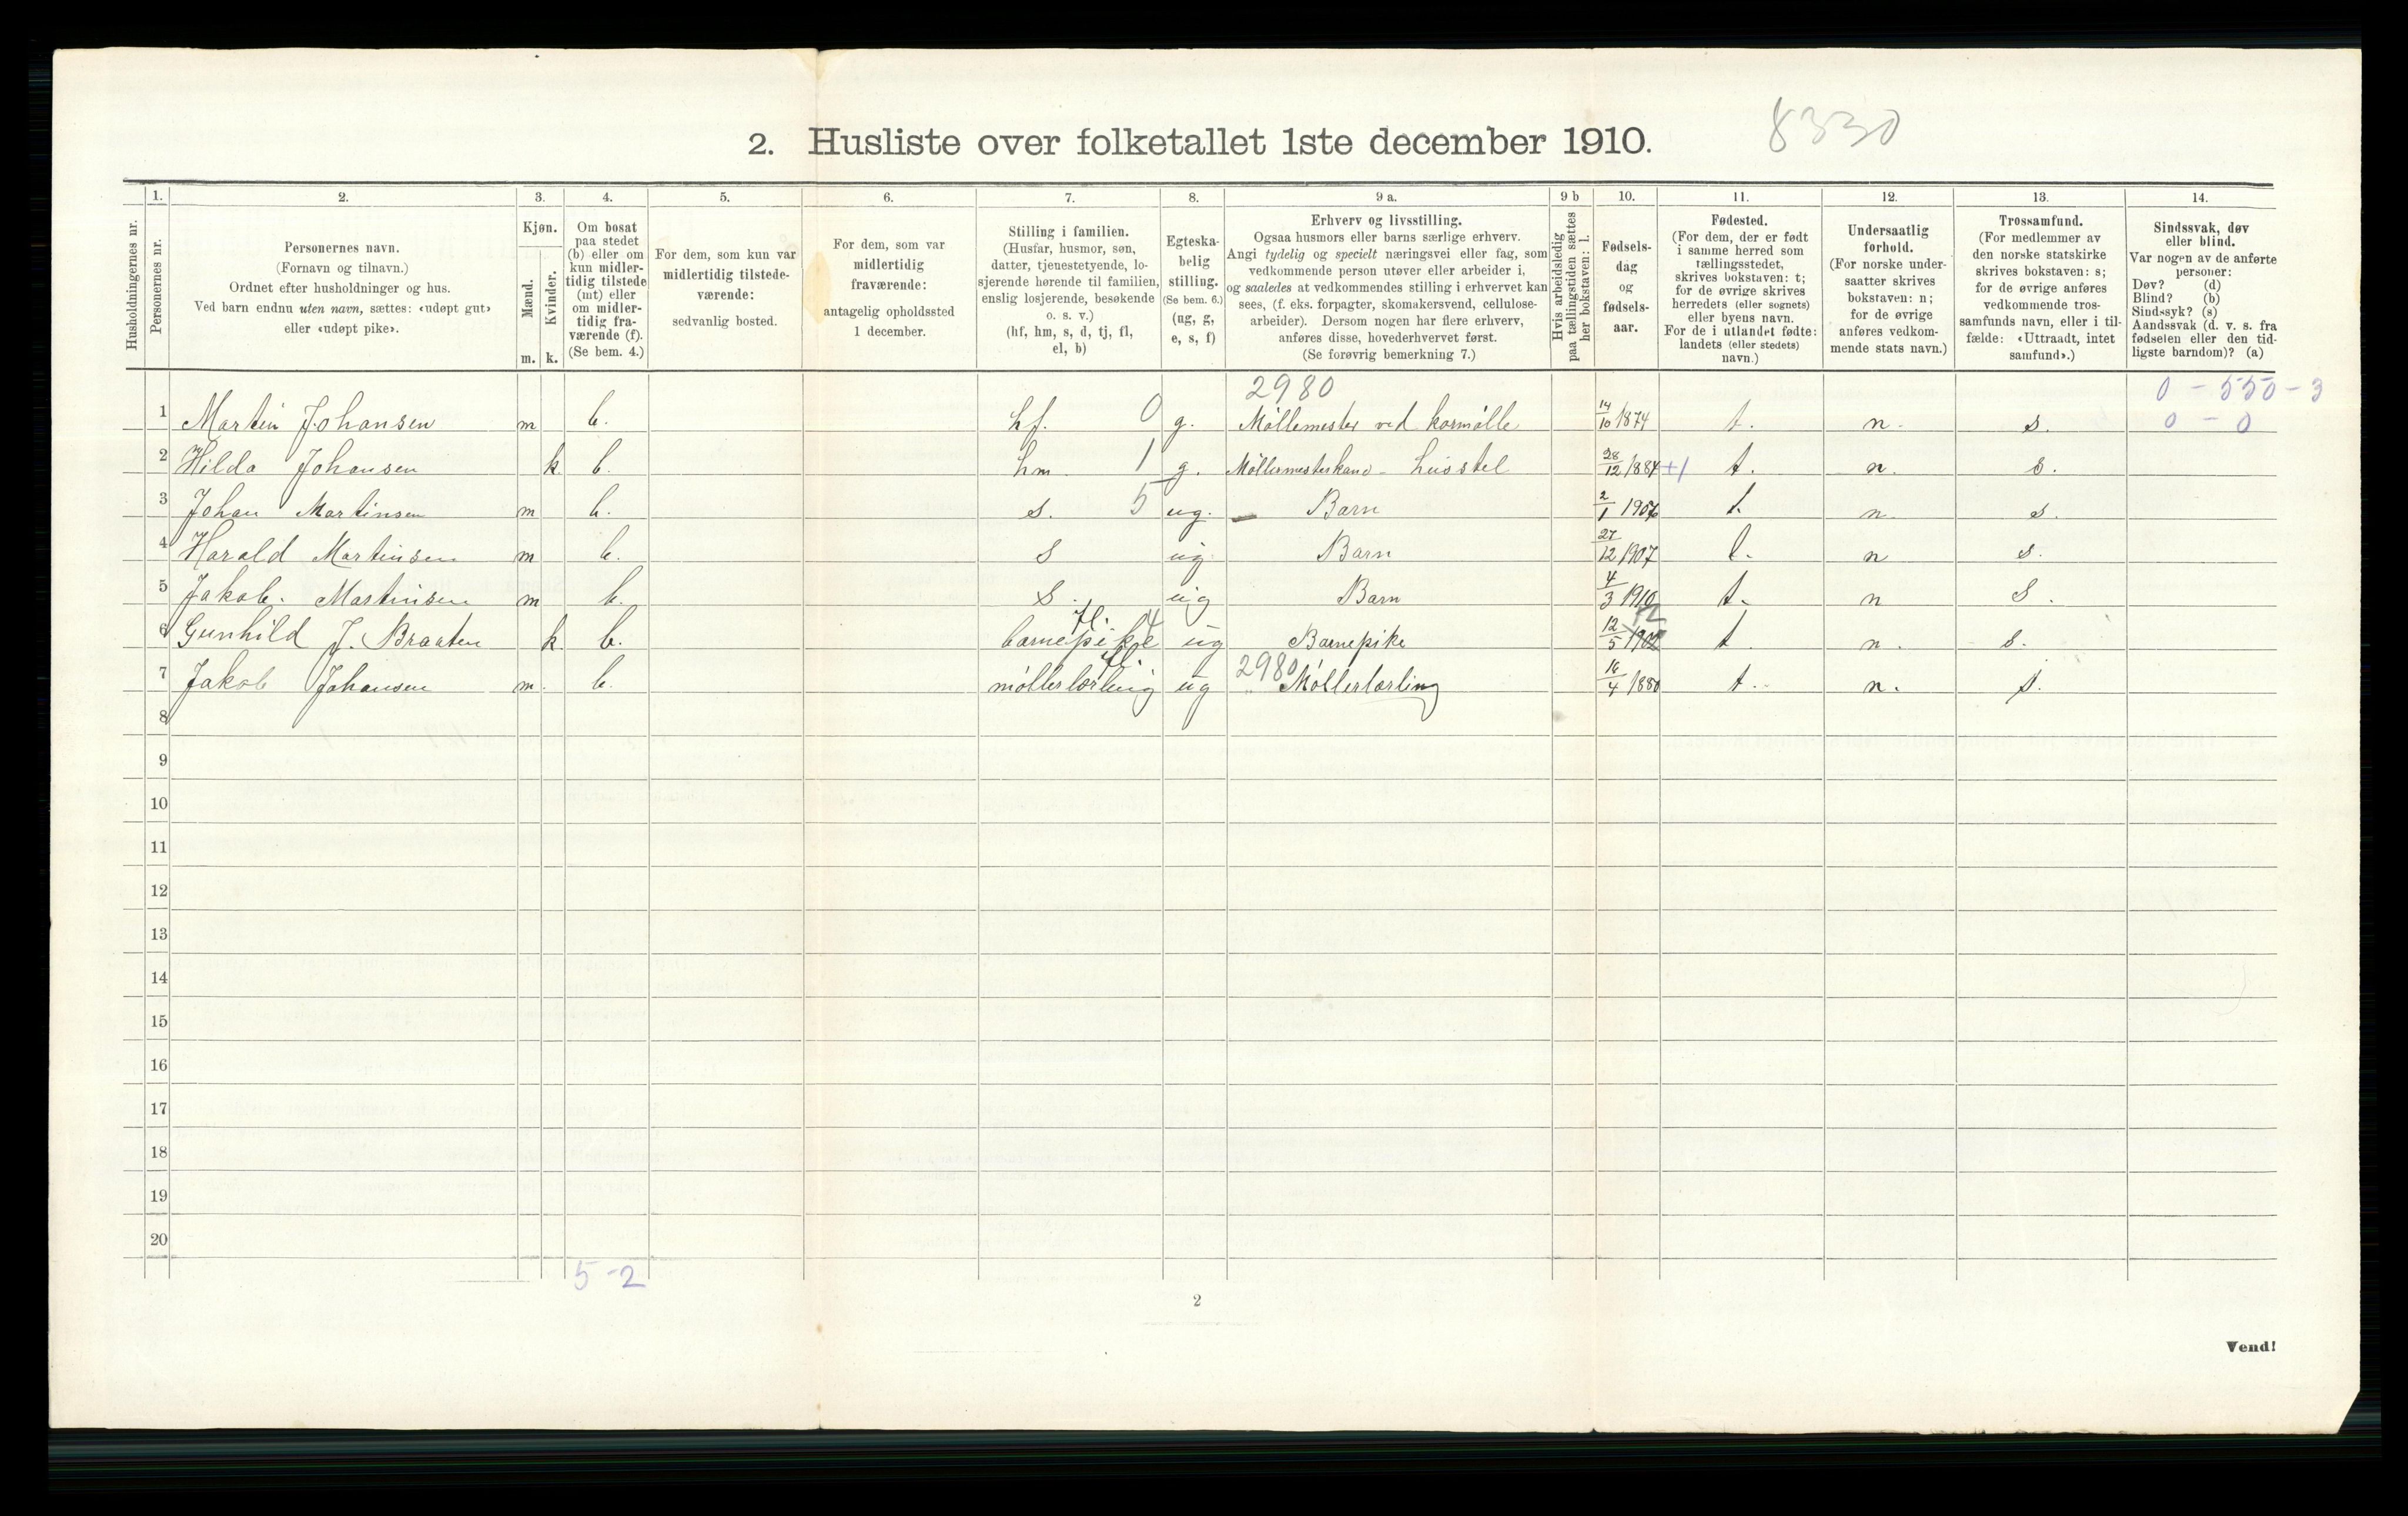 8330
2. Husliste over folketallet 1ste december 1910.
Husholdningernes nr.
1.
Personernes nr.
2.
Personernes navn.
(Fornavn og tilnavn.)
Ordnet efter husholdninger og hus.
Ved barn endnu uten navn, sættes: «udøpt gut»
eller «udøpt pike».
3.
Kjøn.
Mænd.
Kvinder.
m. k.
4.
Om bosat
paa stedet
(b) eller om
kun midler-
tidig tilstede
(mt) eller
om midler-
tidig fra-
værende (f).
(Se bem. 4.)
5.
For dem, som kun var
midlertidig tilstede-
værende:
sedvanlig bosted.
6.
For dem, som var
midlertidig
fraværende:
antagelig opholdssted
1 december.
7.
Stilling i familien.
(Husfar, husmor, søn,
datter, tjenestetyende, lo-
sjerende hørende til familien,
enslig losjerende, besøkende
o. s. v.)
(hf, hm, s, d, tj, fl,
el, b)
8.
Egteska-
belig
stilling.
(Se bem. 6.)
(ug, g,
e, s, f)
9 a.
Erhverv og livsstilling.
Ogsaa husmors eller barns særlige erhverv.
Angi tydelig og specielt næringsvei eller fag, som
vedkommende person utøver eller arbeider i,
og saaledes at vedkommendes stilling i erhvervet kan
sees, (f. eks. forpagter, skomakersvend, cellulose-
arbeider). Dersom nogen har flere erhverv,
anføres disse, hovederhvervet først.
(Se forøvrig bemerkning 7.)
9 b
Hvis arbeidsledig
paa tællingstiden sættes
her bokstaven: l.
10.
Fødsels-
dag
og
fødsels-
aar.
11.
Fødested.
(For dem, der er født
i samme herred som
tællingsstedet,
skrives bokstaven: t;
for de øvrige skrives
herredets (eller sognets)
eller byens navn.
For de i utlandet fødte:
landets (eller stedets)
navn.)
12.
Undersaatlig
forhold.
(For norske under-
saatter skrives
bokstaven: n;
for de øvrige
anføres vedkom-
mende stats navn.)
13.
Trossamfund.
(For medlemmer av
den norske statskirke
skrives bokstaven: s;
for de øvrige anføres
vedkommende tros-
samfunds navn, eller i til-
fælde: «Uttraadt, intet
samfund».)
14.
Sindssvak, døv
eller blind.
Var nogen av de anførte
personer:
Døv? (d)
Blind? (b)
Sindssyk? (s)
Aandssvak (d. v. s. fra
fødselen eller den tid-
ligste barndom)? (a)
2980 0 - 550 - 3
1 Martin Johansen m b. hf. 0 g. Møllemester ved kornmølle 14/10 1874 t. n. s. 0 - 0
2 Hilda Johansen k. b. hm. 1 g. Møllermesterkone - husstel 28/12 1884 +1 t. n. s.
3 Johan Martinsen m b. s. 5 ug. Barn 2/1 1906 t. n. s.
4 Harald Martinsen m b. s ug. Barn 27/12 1907 t. n s.
5 Jakob. Martinsen m b. s. ug Barn 4/3 1910 t. n s.
fl. 4
6 Gunhild J. Braaten k. b. barnepike ug Barnepike 12/5 t n. s.
fl. 2980
7 Jakob Johansen m. b. møllerlærling ug Møllerlærling 16/4 1880 t. n. s.
8
9
10
11
12
13
14
15
16
17
18
19
20
5-2
2
Vend!